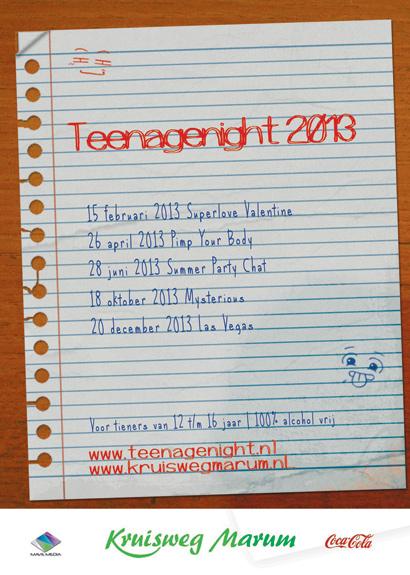 Teenagenight 2013
15 februari 2013 Superlove Valentine
26 april 2013 Pimp Your Body
28 juni 2013 Summer Party Chat
18 oktober 2013 Mysterious
20 december 2013 Las Vegas
Voor tieners van 12 t/m 16 jaar | 100% alcohol vrij
www.teenagenight.nl
www.kruiswegmarum.nl
MAVIS MEDIA
Kruisweg Marum
Coca-Cola